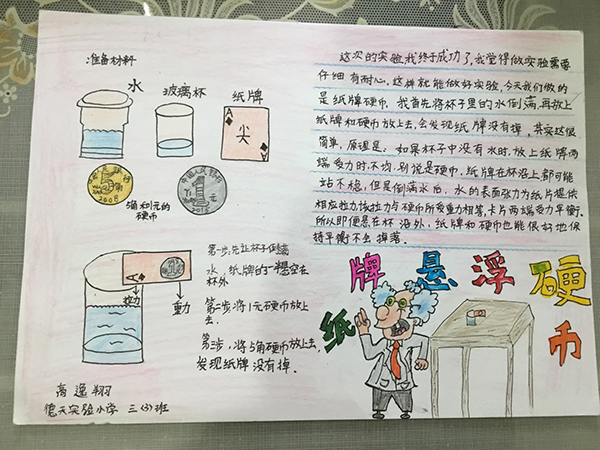 准备材料
水
玻璃杯
纸牌
A
尖
5角
2008
1
5角和1元的
硬币
这次的实验我终于成功了,我觉得做实验需要
仔细有耐心。这样就能做好实验,今天我们做的
是纸牌硬币,我首先将杯子里的水倒满,再放上
纸牌和硬币放上去,会发现纸牌没有掉,其实这很
简单,原理是:如果杯子中没有水时,放上纸牌两
端受力时不均,别说是硬币,纸牌在杯沿上都可能
站不稳,但是倒满水后,水的表面张力为纸片提供
相应拉力,该拉力与硬币所受重力相等,卡片两端受力平衡。
所以即便悬在杯海外,纸牌和硬币也能很好地保
持平衡不会掉落。
A
拉力
重力
第一步,先让杯子倒满
水,纸牌的一半悬空在
杯外
第二步将1元硬币放上
去.
第三步,将5角硬币放上去,
发现纸牌没有掉.
纸牌悬浮硬币
高逸翔
德天实验小学 三(3)班